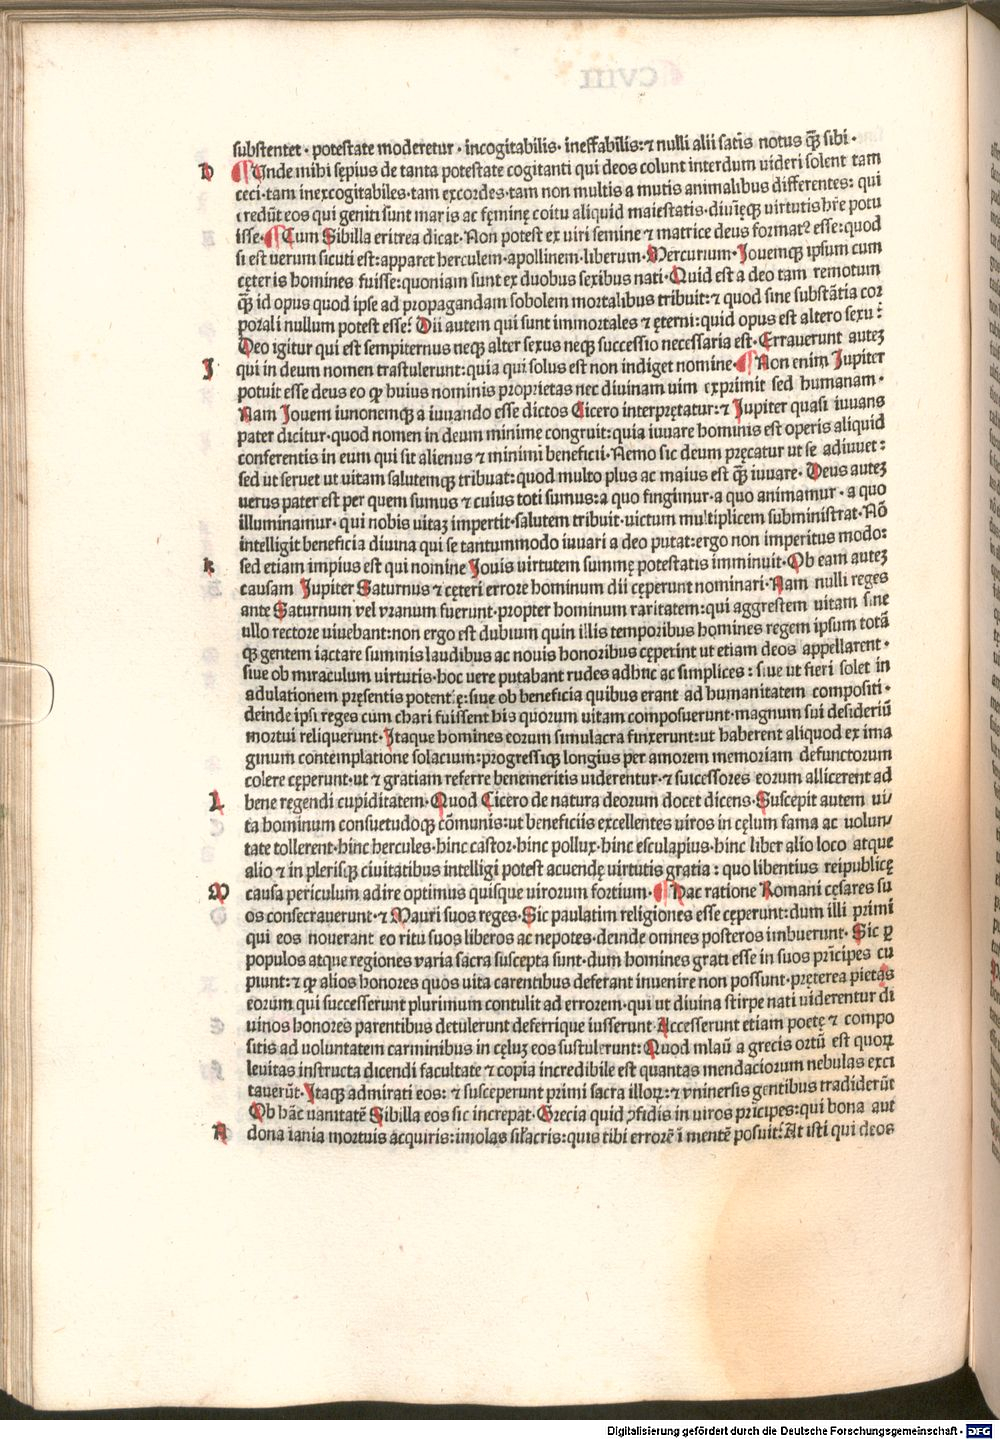 substentet · potestate moderetur · incogitabilis · ineffabilis: ⁊ nulli alii satis notus q̃ sibi ·
H ¶ Unde mihi sępius de tanta potestate cogitanti qui deos colunt interdum uideri solent tam
ceci·tam inexcogitabiles·tam excordes·tam non multis a mutis animalibus differentes: qui
credūt eos qui geniti sunt maris ac fęminę coitu aliquid maiestatis·diuinęꝗ uirtutis hr̄e potu
isse·¶ Cum Sibilla eritrea dicat·Non potest ex uiri semine ⁊ matrice deus format᷑ esse:quod
si est uerum sicuti est:apparet herculem·apollinem·liberum·Mercurium·Iouemꝗ ipsum cum
cęteris homines fuisse:quoniam sunt ex duobus sexibus nati·Quid est a deo tam remotum
q̃ȝ id opus quod ipse ad propagandam sobolem mortalibus tribuit:⁊ quod sine substātia cor
porali nullum potest esse? Dii autem qui sunt immortales ⁊ ęterni:quid opus est altero sexu:
Deo igitur qui est sempiternus neqꝫ alter sexus neqꝫ successio necessaria est·Errauerunt auteȝ
I qui in deum nomen trastulerunt:quia qui solus est non indiget nomine·¶ Non enim Iupiter
potuit esse deus eo ꝙ huius nominis proprietas nec diuinam uim exprimit sed humanam·
Nam Iouem iunonemqꝫ a iuuando esse dictos Cicero interpretatur:⁊ Iupiter quasi iuuans
pater dicitur·quod nomen in deum minime congruit:quia iuuare hominis est operis aliquid
conferentis in eum qui sit alienus ⁊ minimi beneficii·Nemo sic deum pręcatur ut se adiuuet:
sed ut seruet ut uitam salutemqꝫ tribuat:quod multo plus ac maius est q̃ȝ iuuare·Deus auteȝ
uerus pater est per quem sumus ⁊ cuius toti sumus:a quo fingimur·a quo animamur·a quo
illuminamur·qui nobis uitaȝ impertit·salutem tribuit·uictum multiplicem subministrat·Nō
intelligit beneficia diuina qui se tantummodo iuuari a deo putat:ergo non imperitus modo:
K sed etiam impius est qui nomine Iouis uirtutem summę potestatis imminuit·Ob eam auteȝ
causam Iupiter Saturnus ⁊ cęteri errore hominum dii cęperunt nominari·Nam nulli reges
ante Saturnum vel vranum fuerunt·propter hominum raritatem:qui aggrestem uitam sine
ullo rectore uiuebant:non ergo est dubium quin illis temporibus homines regem ipsum totā
qꝫ gentem iactare summis laudibus ac nouis honoribus cęperint ut etiam deos appellarent·
siue ob miraculum uirtutis·hoc uere putabant rudes adhnc ac simplices: siue ut fieri solet in
adulationem pręsentis potentię:siue ob beneficia quibus erant ad humanitatem compositi·
deinde ipsi reges cum chari fuissent his quorum uitam composuerunt·magnum sui desideriū
mortui reliquerunt·Itaque homines eorum simulacra finxerunt:ut haberent aliquod ex ima
ginum contemplatione solacium:progressiqꝫ longius per amorem memoriam defunctorum
colere cęperunt·ut ⁊ gratiam referre benemeritis uiderentur·⁊ successores eorum allicerent ad
L bene regendi cupiditatem·Quod Cicero de natura deorum docet dicens·Suscepit autem ui/
ta hominum consuetudoqꝫ cōmunis:ut beneficiis excellentes uiros in cęlum fama ac uolun/
tate tollerent·hinc hercules·hinc castor·hinc pollux·hinc esculapius·hinc liber alio loco atque
alio ⁊ in plerisqꝫ ciuitatibus intelligi potest acuendę uirtutis gratia: quo libentius reipublicę
M causa periculum adire optimus quisque uirorum fortium·¶ Hac ratione Romani cęsares su
os consecrauerunt·⁊ Mauri suos reges·Sic paulatim religiones esse cęperunt:dum illi primi
qui eos nouerant eo ritu suos liberos ac nepotes·deinde omnes posteros imbuerunt·Sic ꝑ
populos atque regiones varia sacra suscepta sunt·dum homines grati esse in suos prīcipes cu
piunt:⁊ ꝙ alios honores quos uita carentibus deferant inuenire non possunt·pręterea pietas
eorum qui successerunt plurimum contulit ad errorem·qui ut diuina stirpe nati uiderentur di
uinos honores parentibus detulerunt deferrique iusserunt·Accesserunt etiam poetę ⁊ compo
sitis ad uoluntatem carminibus in cęluȝ eos sustulerunt:Quod mlaū a grecis ortū est quoꝝ
leuitas instructa dicendi facultate ⁊ copia incredibile est quantas mendaciorum nebulas exci
tauerūt·Itaqꝫ admirati eos: ⁊ susceperunt primi sacra illoꝝ:⁊ vninersis gentibus tradiderūt
Ob hāc uanitatē Sibilla eos sic increpat·Grecia quid ꝯfidis in uiros pricipes:qui bona aut
N dona iania mortuis acquiris:imolas sił̄acris:quis tibi errorē ī mentē posuit?At isti qui deos
Digitalisierung gefördert durch die Deutsche Forschungsgemeinschaft - DFG